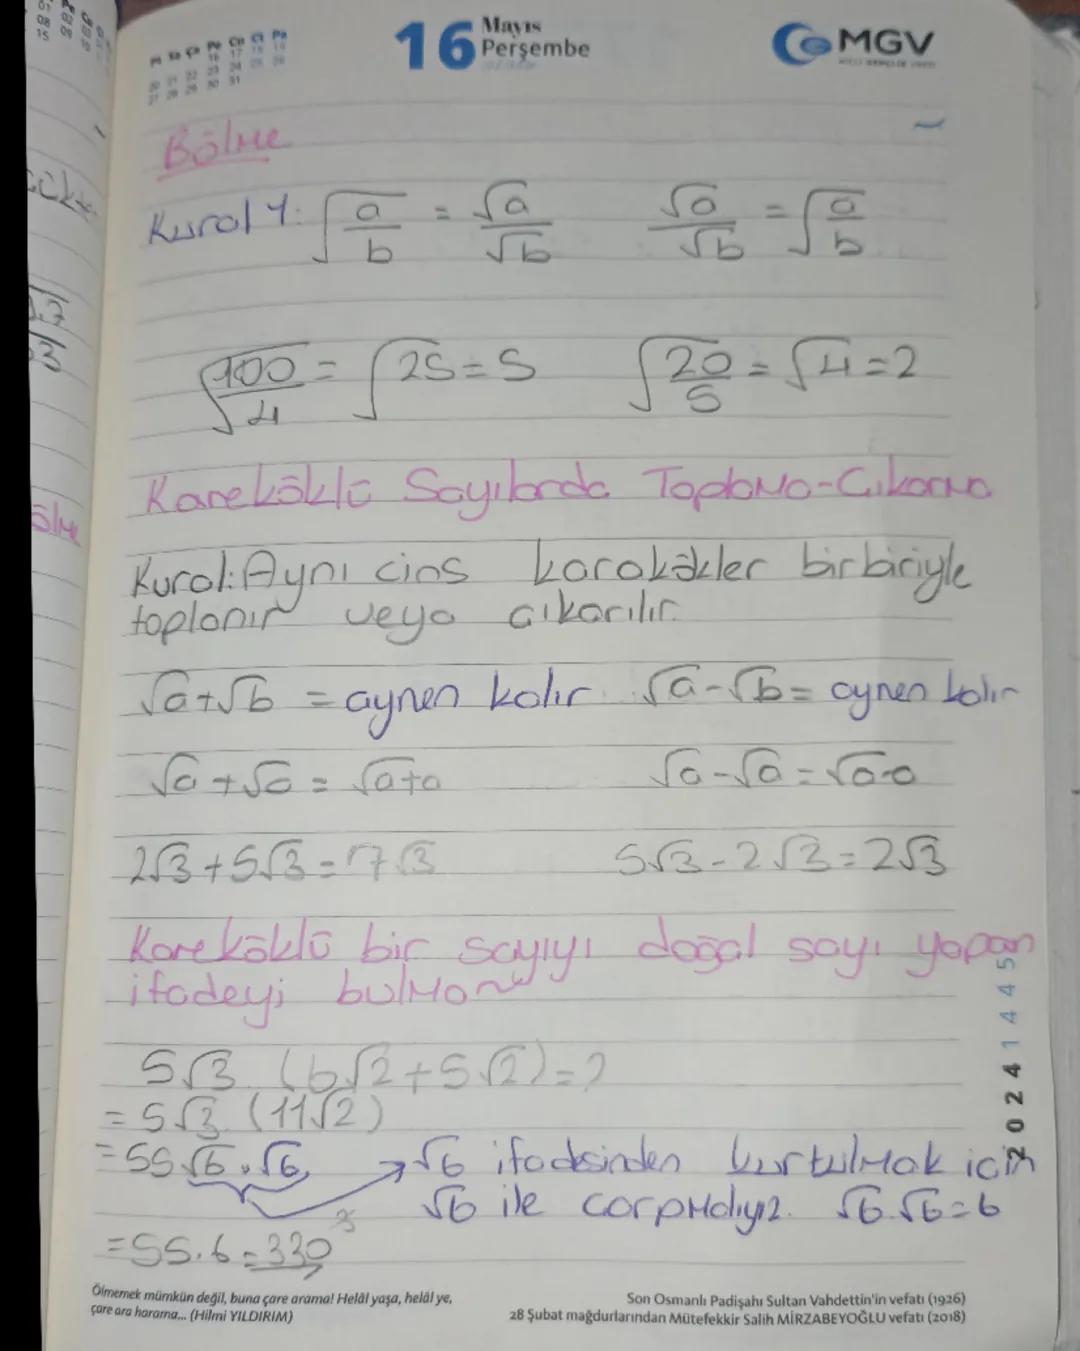 16 Mayıs
Perşembe
MGV
Bölme
Kural 1: √(a/b) = √a/√b   √a/√b = √(a/b)
√(100/4) = √25 = 5   √(20/5) = √4 = 2
Kareköklü Sayılarda Toplama-Çıkarma
Kural: Aynı cins karakökler birbiriyle
toplanır veya çıkarılır.
√a+√b = aynen kalır   √a-√b = aynen kalır
√a+√a = √a+a   √a-√a = √a-a
2√3+5√3=7√3   5√3-2√3=2√3
Kareköklü bir sayıyı doğal sayı yapan
ifadeyi bulma
5√3 (6√2+5√2)=?
=5√3.(11√2)
=55√6.√6   √6 ifadesinden kurtulmak için
√6 ile çarpmalıyız. √6.√6=6
=55.6=330
2024 1445
Ölmemek mümkün değil, buna çare arama! Helâl yaşa, helâl ye,
çare ara harama... (Hilmi YILDIRIM)
Son Osmanlı Padişahı Sultan Vahdettin'in vefatı (1926)
28 Şubat mağdurlarından Mütefekkir Salih MİRZABEYOĞLU vefatı (2018)